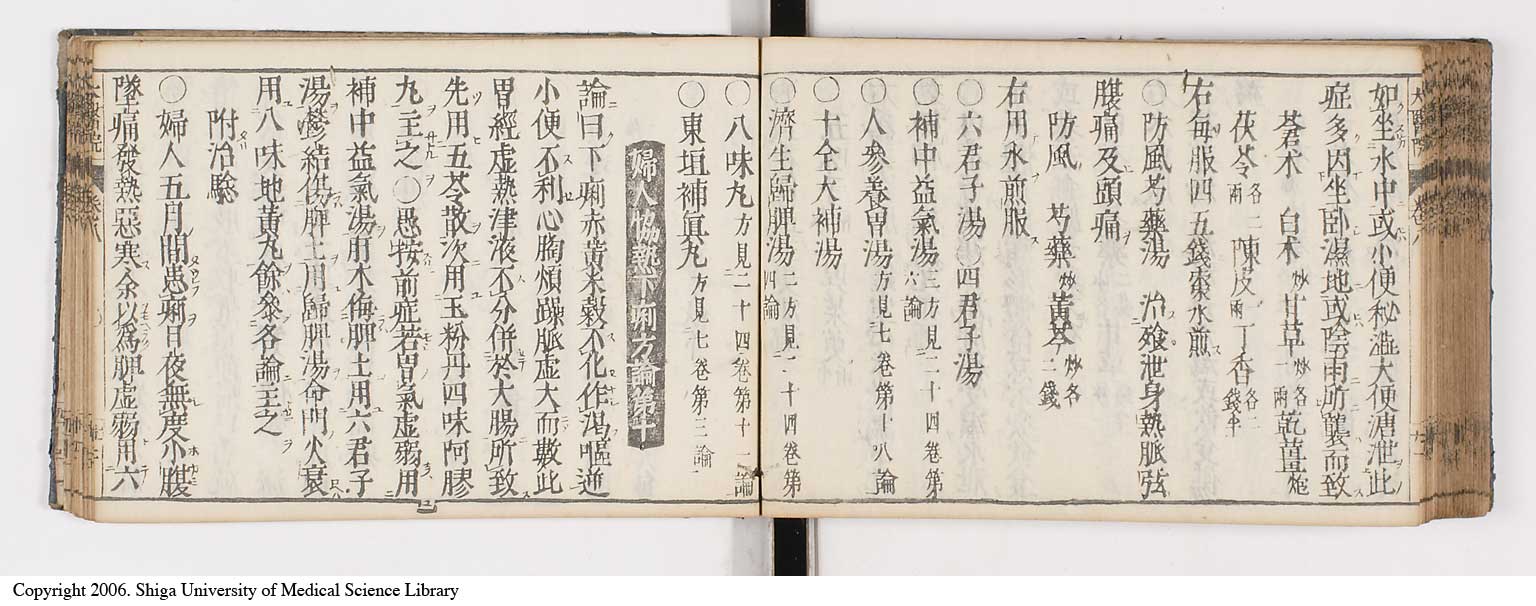 如坐水中或小便秘澁大便溏泄此
症多因坐卧濕地或陰雨所襲而致
蒼朮 白朮炒 甘草炒各一兩 乾薑炮
茯苓各二兩 陳皮 丁香各二錢半
右每服四五錢棗水煎
○防風芍藥湯 治飱泄身熱脈弦
腹痛及頭痛
防風 芍藥炒 黄芩炒各二錢
右用水煎服
○六君子湯○四君子湯
○補中益氣湯三方見二十四卷第六論
○人參養胃湯方見七卷第十八論
○十全大補湯
○濟生歸脾湯二方見二十四卷第四論
○八味丸方見二十四卷第十一論
○東垣補眞丸方見七卷第三論
婦人恊熱下痢方論第十
論曰下痢赤黄米穀不化作渴嘔逆
小便不利心胸煩躁脈虚大而數此
胃經虚熱津液不分併於大腸所致
先用五苓散次用玉粉丹四味阿膠
丸主之○愚按前症若胃氣虚弱用
補中益氣湯肝木侮脾土用六君子
湯欝結傷脾土用歸脾湯命門火衰
用八味地黄丸餘參各論主之
附治驗
○婦人五月間患痢日夜無度小腹
墜痛發熱惡寒余以爲脾虚弱用六
Copyright 2006. Shiga University of Medical Science Library